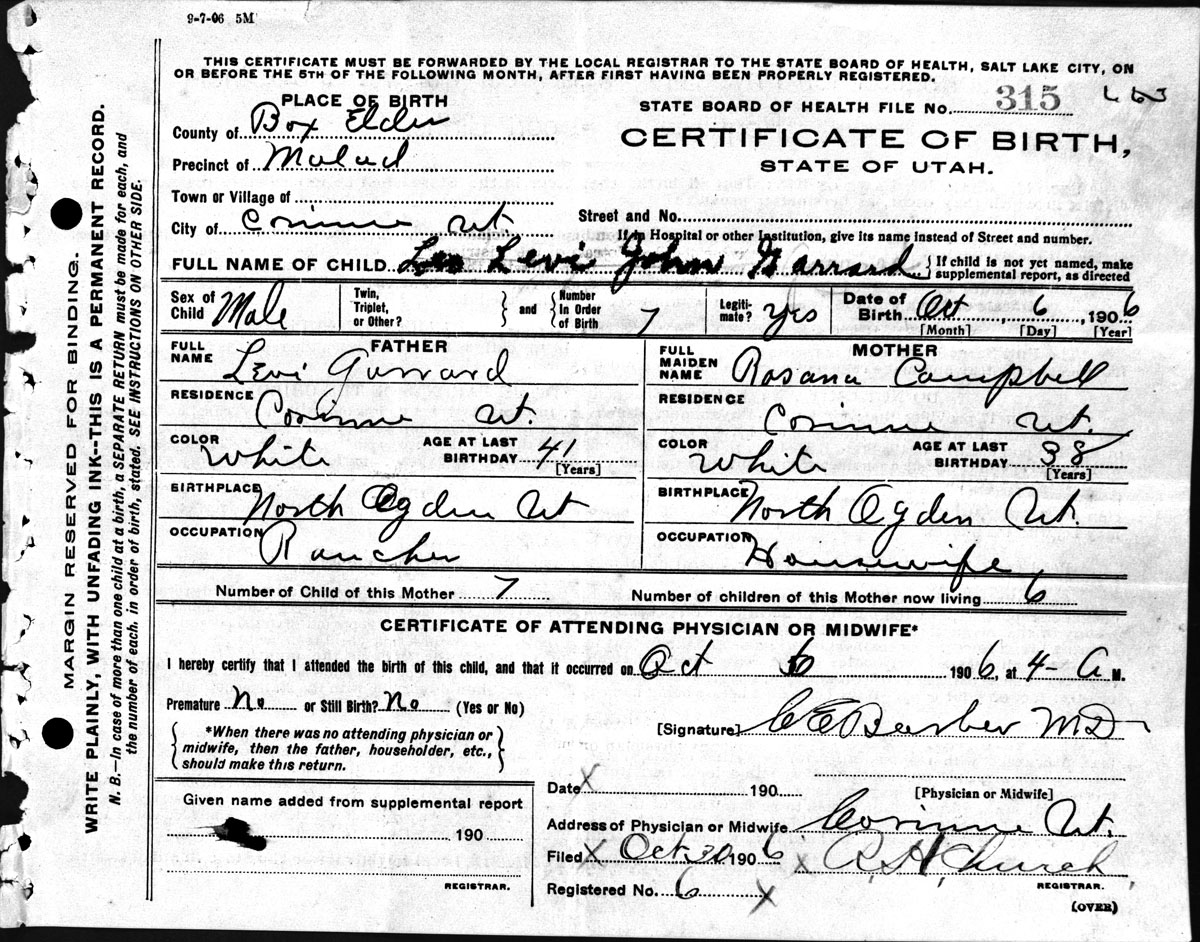 9-7-06 5M
THIS CERTIFICATE MUST BE FORWARDED BY THE LOCAL REGISTRAR TO THE STATE BOARD OF HEALTH, SALT LAKE CITY, ON
OR BEFORE THE 5TH OF THE FOLLOWING MONTH, AFTER FIRST HAVING BEEN PROPERLY REGISTERED.
MARGIN RESERVED FOR BINDING.
WRITE PLAINLY, WITH UNFADING INK--THIS IS A PERMANENT RECORD.
N. B.—In case of more than one child at a birth, a SEPARATE RETURN must be made for each, and
the number of each. in order of birth, stated. SEE INSTRUCTIONS ON OTHER SIDE.
PLACE OF BIRTH
County of Box Elder
Precinct of Malad
Town or Village of
City of Corinne Ut.
STATE BOARD OF HEALTH FILE No. 315
CERTIFICATE OF BIRTH,
STATE OF UTAH.
Street and No.
If in Hospital or other Institution, give its name instead of Street and number.
FULL NAME OF CHILD Levi John Garrard { If child is not yet named, make
supplemental report, as directed
Sex of Child Male
Twin, Triplet, or Other? } and { Number In Order of Birth 7
Legiti-mate? yes
Date of Birth Oct 6, 1906
[Month] [Day] [Year]
FATHER
FULL NAME Levi Garrard
RESIDENCE Corinne Ut.
COLOR White AGE AT LAST BIRTHDAY 41 [Years]
BIRTHPLACE North Ogden Ut
OCCUPATION Rancher
MOTHER
FULL MAIDEN NAME Rosana Campbell
RESIDENCE Corinne Ut.
COLOR White AGE AT LAST BIRTHDAY 38 [Years]
BIRTHPLACE North Ogden Ut.
OCCUPATION Housewife
Number of Child of this Mother 7 Number of children of this Mother now living 6
CERTIFICATE OF ATTENDING PHYSICIAN OR MIDWIFE*
I hereby certify that I attended the birth of this child, and that it occurred on Oct 6 1906, at 4- A M.
Premature No or Still Birth? No (Yes or No)
{ *When there was no attending physician or
midwife, then the father, householder, etc.,
should make this return. }
[Signature] C E Barber MD
[Physician or Midwife]
Given name added from supplemental report
190
REGISTRAR.
Date X 190
Address of Physician or Midwife Corinne Ut.
Filed X Oct 30 1906 X R. H. Church
REGISTRAR.
Registered No. 6 X
(OVER)